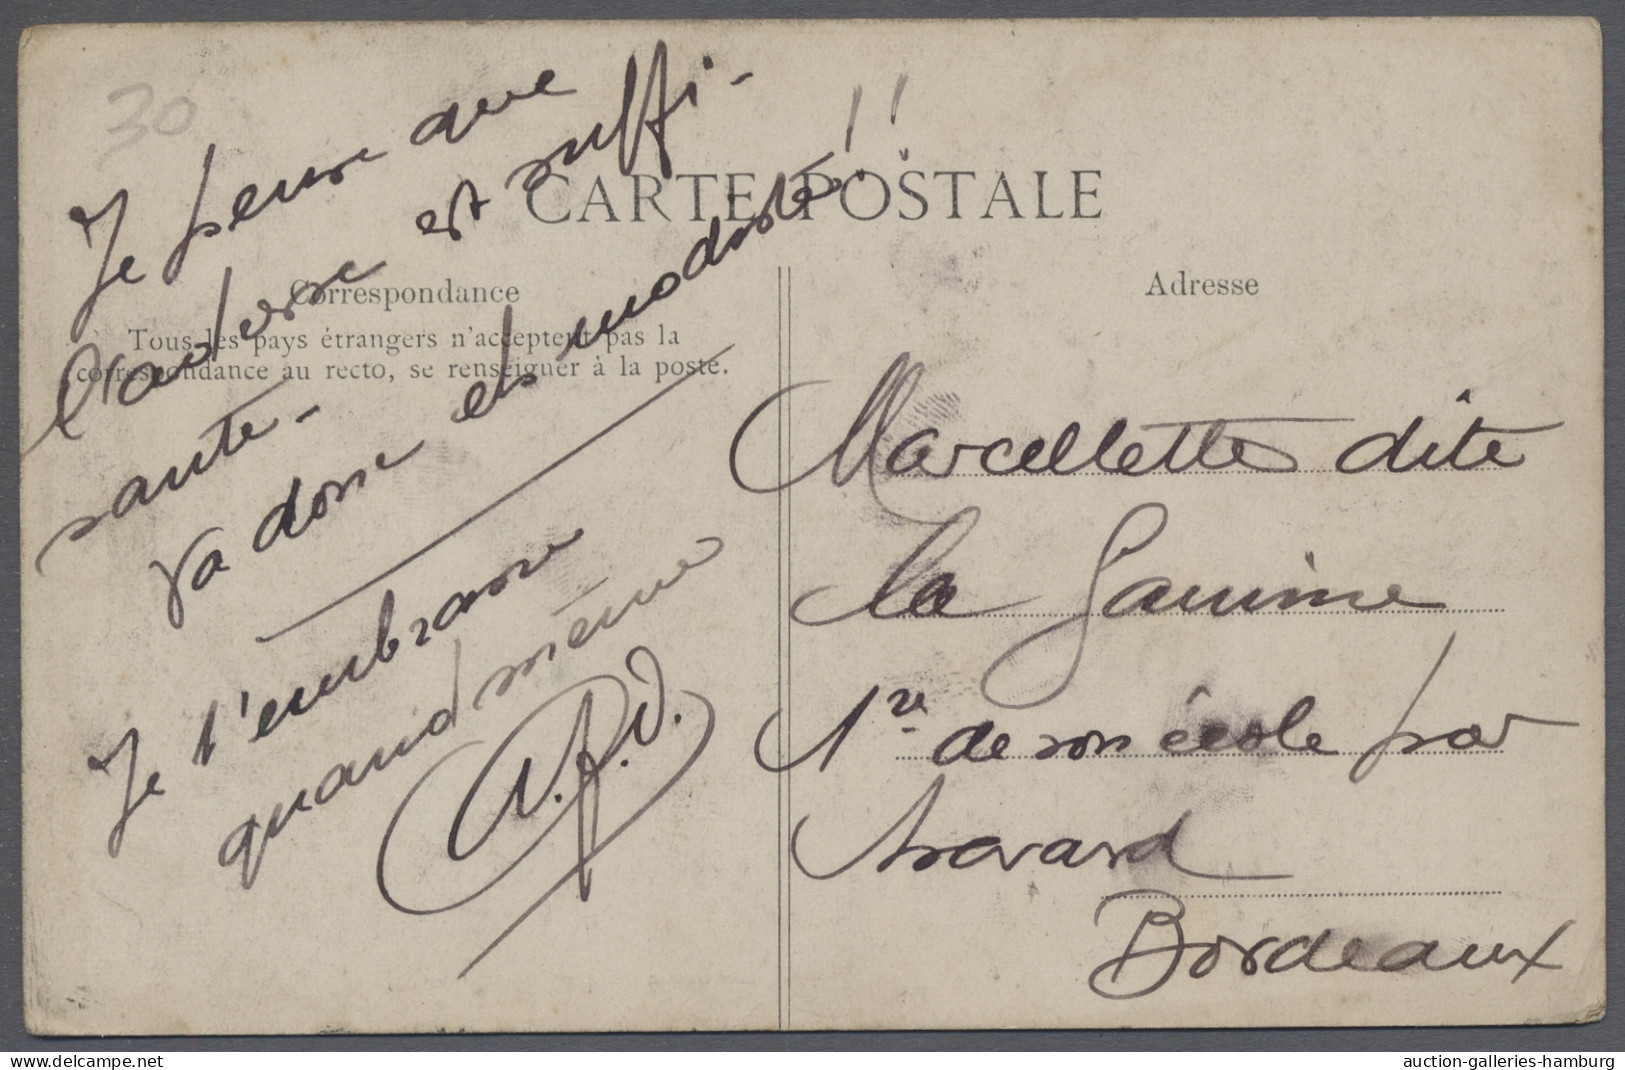 30
Je pense que
l'adresse est suffi-
sante -
Va donc eh modiste!!
Je t'embrasse
quand même
A.P.D.
CARTE POSTALE
Correspondance
Tous les pays étrangers n'acceptent pas la
correspondance au recto, se renseigner à la poste.
Adresse
Marcellette dite
la Gamine
1re de son école par
Bordeaux
delcampe.net
auction-galleries-hamburg